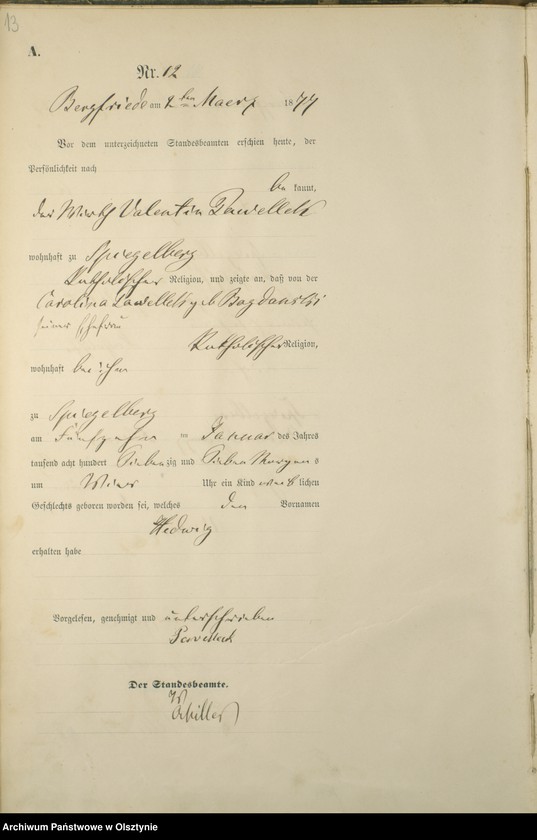 13
A.
Nr. 12
Bergfriede am 2ten Maerz 1877
Vor dem unterzeichneten Standesbeamten erschien heute, der
Persönlichkeit nach
be kannt,
der Wirth Valentin
wohnhaft zu Spiegelberg
Katholischer Religion, und zeigte an, daß von der
Carolina geb Bogdanski
seiner Ehefrau
Katholischer Religion,
wohnhaft bei ihm
zu Spiegelberg
am Fünfzehn ten Januar des Jahres
tausend acht hundert Sieben zig und Sieben Morgens
um Uhr ein Kind lichen
Geschlechts geboren worden sei, welches den Vornamen
Hedwig
erhalten habe
Vorgelesen, genehmigt und unterschrieben
Der Standesbeamte.
Archiwum Państwowe w Olsztynie